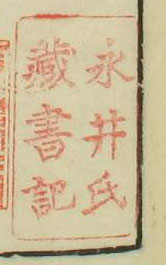 永井氏
藏書記